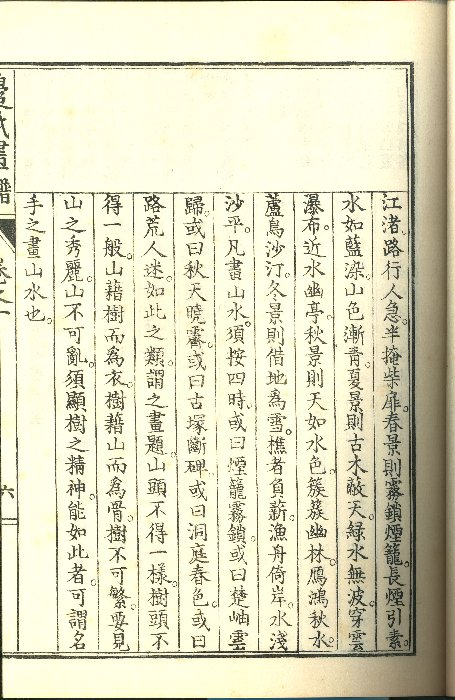 江渚。路行人急。半掩柴扉。春景則霧鎖煙籠。長煙引素。
水如藍染。山色漸靑。夏景則古木蔽天。綠水無波。穿雲
瀑布。近水幽亭。秋景則天如水色。簇簇幽林。鴈鴻秋水。
蘆鳥沙汀。冬景則借地爲雪。樵者負薪。漁舟倚岸。水淺
沙平。凡畫山水。須按四時。或曰煙籠霧鎖。或曰楚岫雲
歸。或曰秋天曉霽。或曰古塚斷碑。或曰洞庭春色。或曰
路荒人迷。如此之類。謂之畫題。山頭不得一樣。樹頭不
得一般。山藉樹而爲衣。樹藉山而爲骨。樹不可繁。要見
山之秀麗。山不可亂。須顯樹之精神。能如此者。可謂名
手之畫山水也。
畫譜
卷之一
六